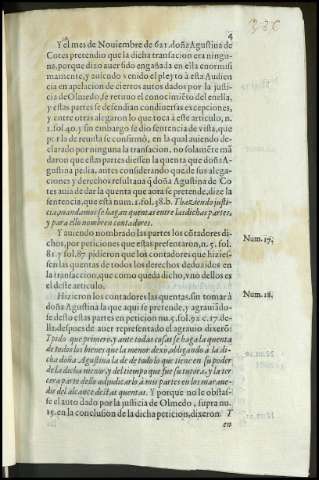 336
4
Y el mes de Nouiembre de 621. doña Agustina de
Cotes pretendio que la dicha transacion era ningu-
na, porque dixo auer sido engañada en ella enormissi
mamente, y auiendo venido el pleyto à esta Audien
cia en apelacion de ciertos autos dados por la justi-
cia de Olmedo, se retuuo el conocimiẽto del enella,
y estas partes se defendian con diuersas excepciones,
y entre otras alegaron lo que toca à este articulo, n.
1. fol. 40. y sin embargo se dio sentencia de vista, que
por la de reuista se confirmò, en la qual auiendo de-
clarado por ninguna la transacion, no solamẽte mã
daron que estas partes diessen la quenta que doña A-
gustina pedia, antes considerando que de sus alega-
ciones y derechos resultaua q̃ doña Agustina de Co
tes auia de dar la quenta que aora se pretende, dize la
sentencia, que esta num. 1. fol. 38. b. Y haziendo justi-
cia, mandamos se hagan quentas entre las dichas partes,
y para ello nombren contadores.
Y auiendo nombrado las partes los cõtadores di-
chos, por peticiones que estas presentaron, n. 5. fol.
81. y fol. 87. pidieron que los contadores que hizies-
sen las quentas de todos los derechos deduzidos en
la transacion, que como queda dicho, vno dellos es
el deste articulo.
Num. 17.
Hizieron los contadores las quentas, sin tomar à
doña Agustina la que aqui se pretende, y agrauiãdo-
se desto estas partes en peticion nu. 5. fol. 92. c. 17. de-
lla, despues de auer representado el agrauio dixerõ:
Num. 18.
Y pido que primero, y ante todas cosas se haga la quenta
de todos los bienes que la menor dexò, obligando à la di-
cha doña Agustina la dè de todo lo que tiene en su poder
de la dicha menor, y del tiempo que fue su tutora, y la ter
cera parte dello adjudicarlo à mis partes en los maraue-
dis del alcance destas quentas. Y porque no le obstas-
se el auto dado por la justicia de Olmedo, supra nu.
15. en la conclusion de la dicha peticion, dixeron: Y
en